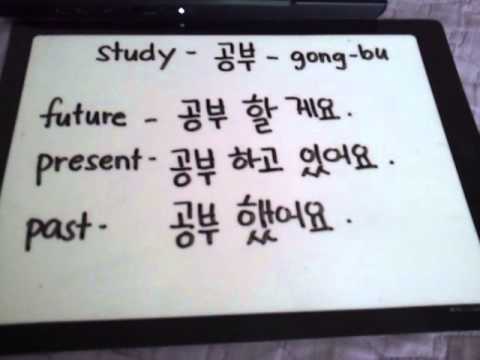 study - 공부 - gong-bu
future - 공부 할 게요.
present - 공부 하고 있어요.
past - 공부 했어요.